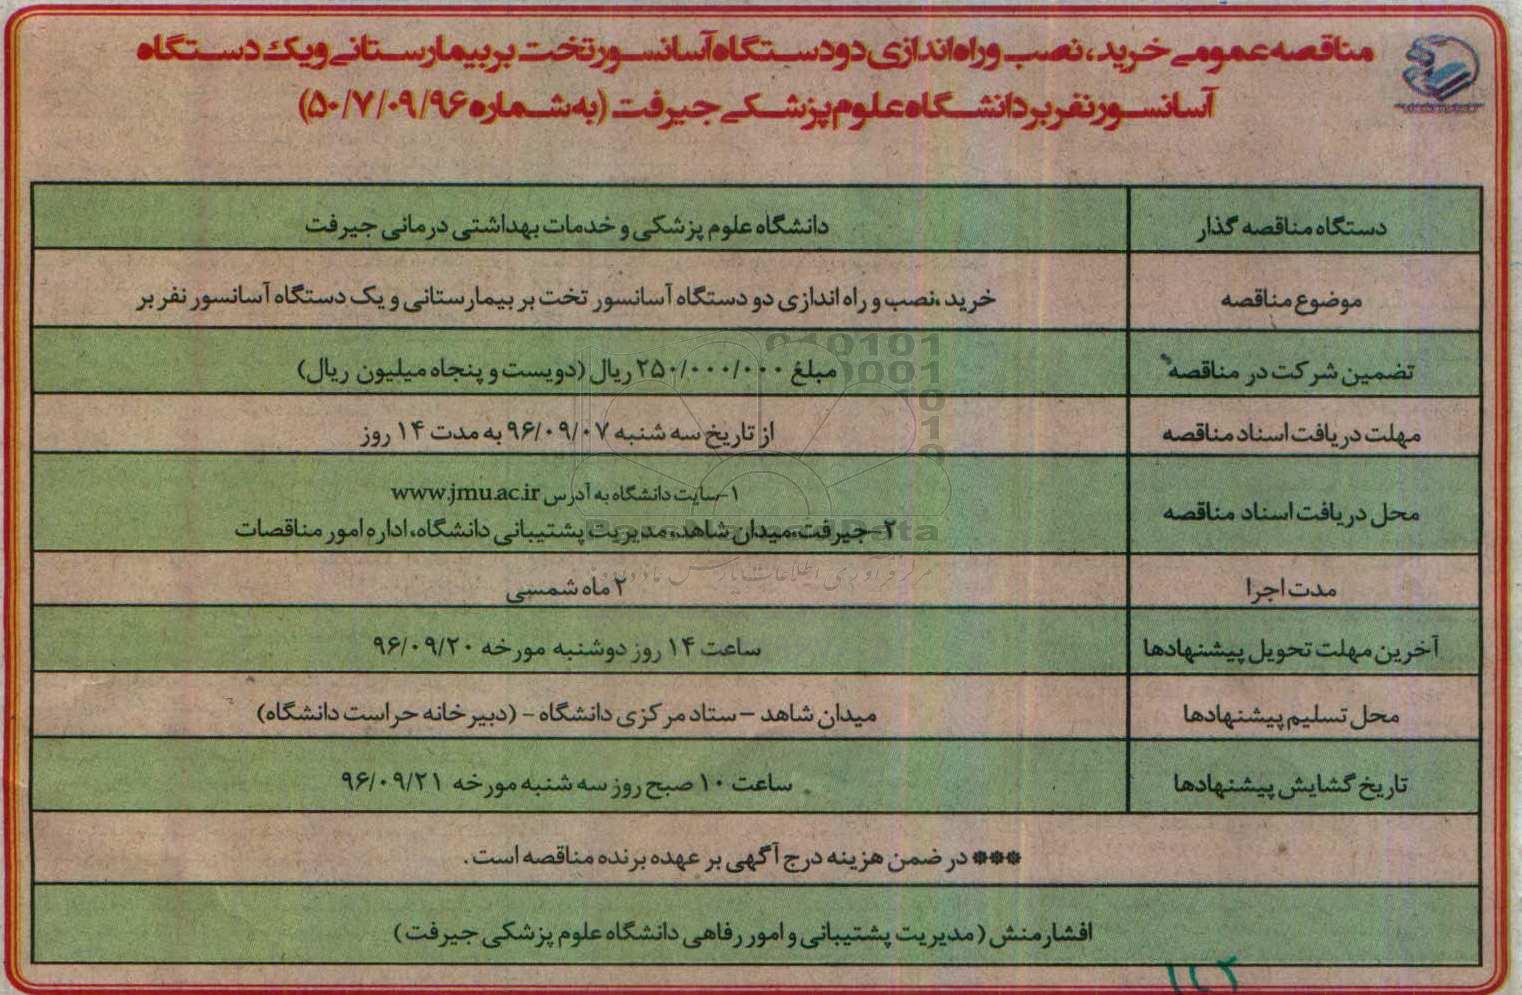 مناقصه عمومی خرید، نصب و راه اندازی دو دستگاه آسانسور تخت بر بیمارستانی و یک دستگاه
آسانسور نفر بر دانشگاه علوم پزشکی جیرفت (به شماره ۵۰/۷/۰۹/۹۶)
دستگاه مناقصه گذار
دانشگاه علوم پزشکی و خدمات بهداشتی درمانی جیرفت
موضوع مناقصه
خرید ،نصب و راه اندازی دو دستگاه آسانسور تخت بر بیمارستانی و یک دستگاه آسانسور نفر بر
تضمین شرکت در مناقصه
مبلغ ۲۵۰/۰۰۰/۰۰۰ ریال (دویست و پنجاه میلیون ریال)
مهلت دریافت اسناد مناقصه
از تاریخ سه شنبه ۹۶/۰۹/۰۷ به مدت ۱۴ روز
محل دریافت اسناد مناقصه
۱-سایت دانشگاه به آدرس www.jmu.ac.ir
۲-جیرفت،میدان شاهد، مدیریت پشتیبانی دانشگاه، اداره امور مناقصات
مدت اجرا
۲ ماه شمسی
آخرین مهلت تحویل پیشنهادها
ساعت ۱۴ روز دوشنبه مورخه ۹۶/۰۹/۲۰
محل تسلیم پیشنهادها
میدان شاهد – ستاد مرکزی دانشگاه - (دبیر خانه حراست دانشگاه)
تاریخ گشایش پیشنهادها
ساعت ۱۰ صبح روز سه شنبه مورخه ۹۶/۰۹/۲۱
*** در ضمن هزینه درج آگهی بر عهده برنده مناقصه است.
افشارمنش (مدیریت پشتیبانی و امور رفاهی دانشگاه علوم پزشکی جیرفت)